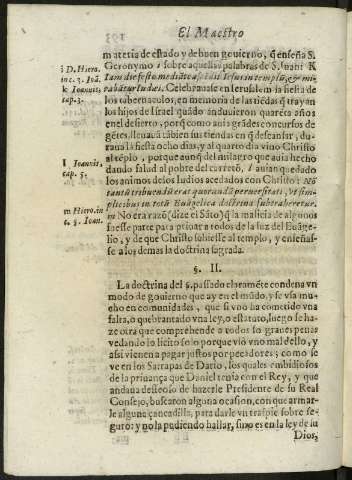 El Maestro
materia de estado y de buen gouierno, q̃ enseña S.
Geronymo i sobre aquellas palabras de S. Iuan: K
Iam die festo mediãte ascẽdit Iesus in templũ, & mi-
rabãtur Iudæi. Celebrauase en Ierusalem la fiesta de
los tabernaculos, en memoria de las tiẽdas q̃ trayan
los hijos de Israel quando anduuieron quarẽta años
en el desierto, porq̃ como a tã grãdes concursos de
gẽtes, lleuauã tãbien sus tiendas en q̃ descansar, du-
raua la fiesta ocho dias, y al quarto dia vino Christo
al tẽplo, porque aunq̃ del milagro que auia hecho
dando salud al pobre del carretõ, l auian quedado
los animos de los Iudios azedados con Christo: Nõ
tantũ tribuendũ erat quorundã peruersitati, vt sim-
plicibus in totũ Euãgelica doctrina subtraheretur.
m No era razõ (dize el Sãto) q̃ la malicia de algunos
fuesse parte para priuar a todos de la luz del Euãge-
lio, y de que Christo subiesse al templo, y enseñas-
se a los demas la doctrina sagrada.
§. II.
La doctrina del §. passado claramẽte condena vn
modo de gouierno que ay en el mũdo, y se vsa mu-
cho en comunidades, que si vno ha cometido vna
falta, o quebrantado vna ley, o estatuto, luego se ha-
ze otra que comprehende a todos so graues penas
vedando lo licito solo porque vio vno mal dello, y
assi vienen a pagar justos por pecadores; como se
ve en los Satrapas de Dario, los quales embidiosos
de la priuança que Daniel tenia con el Rey, y que
andaua desseoso de hazerle Presidente de su Real
Consejo, buscaron alguna ocasion, con que armar-
le alguna çancadilla, para darle vn traspie sobre se-
guro: y no la pudiendo hallar, sino es en la ley de su
Dios,
i D. Hiero.
inc. 3. Ioã.
k Ioannis,
cap. 3.
l Ioannis,
cap. 5.
m Hiero. in
c. 5. Ioan.